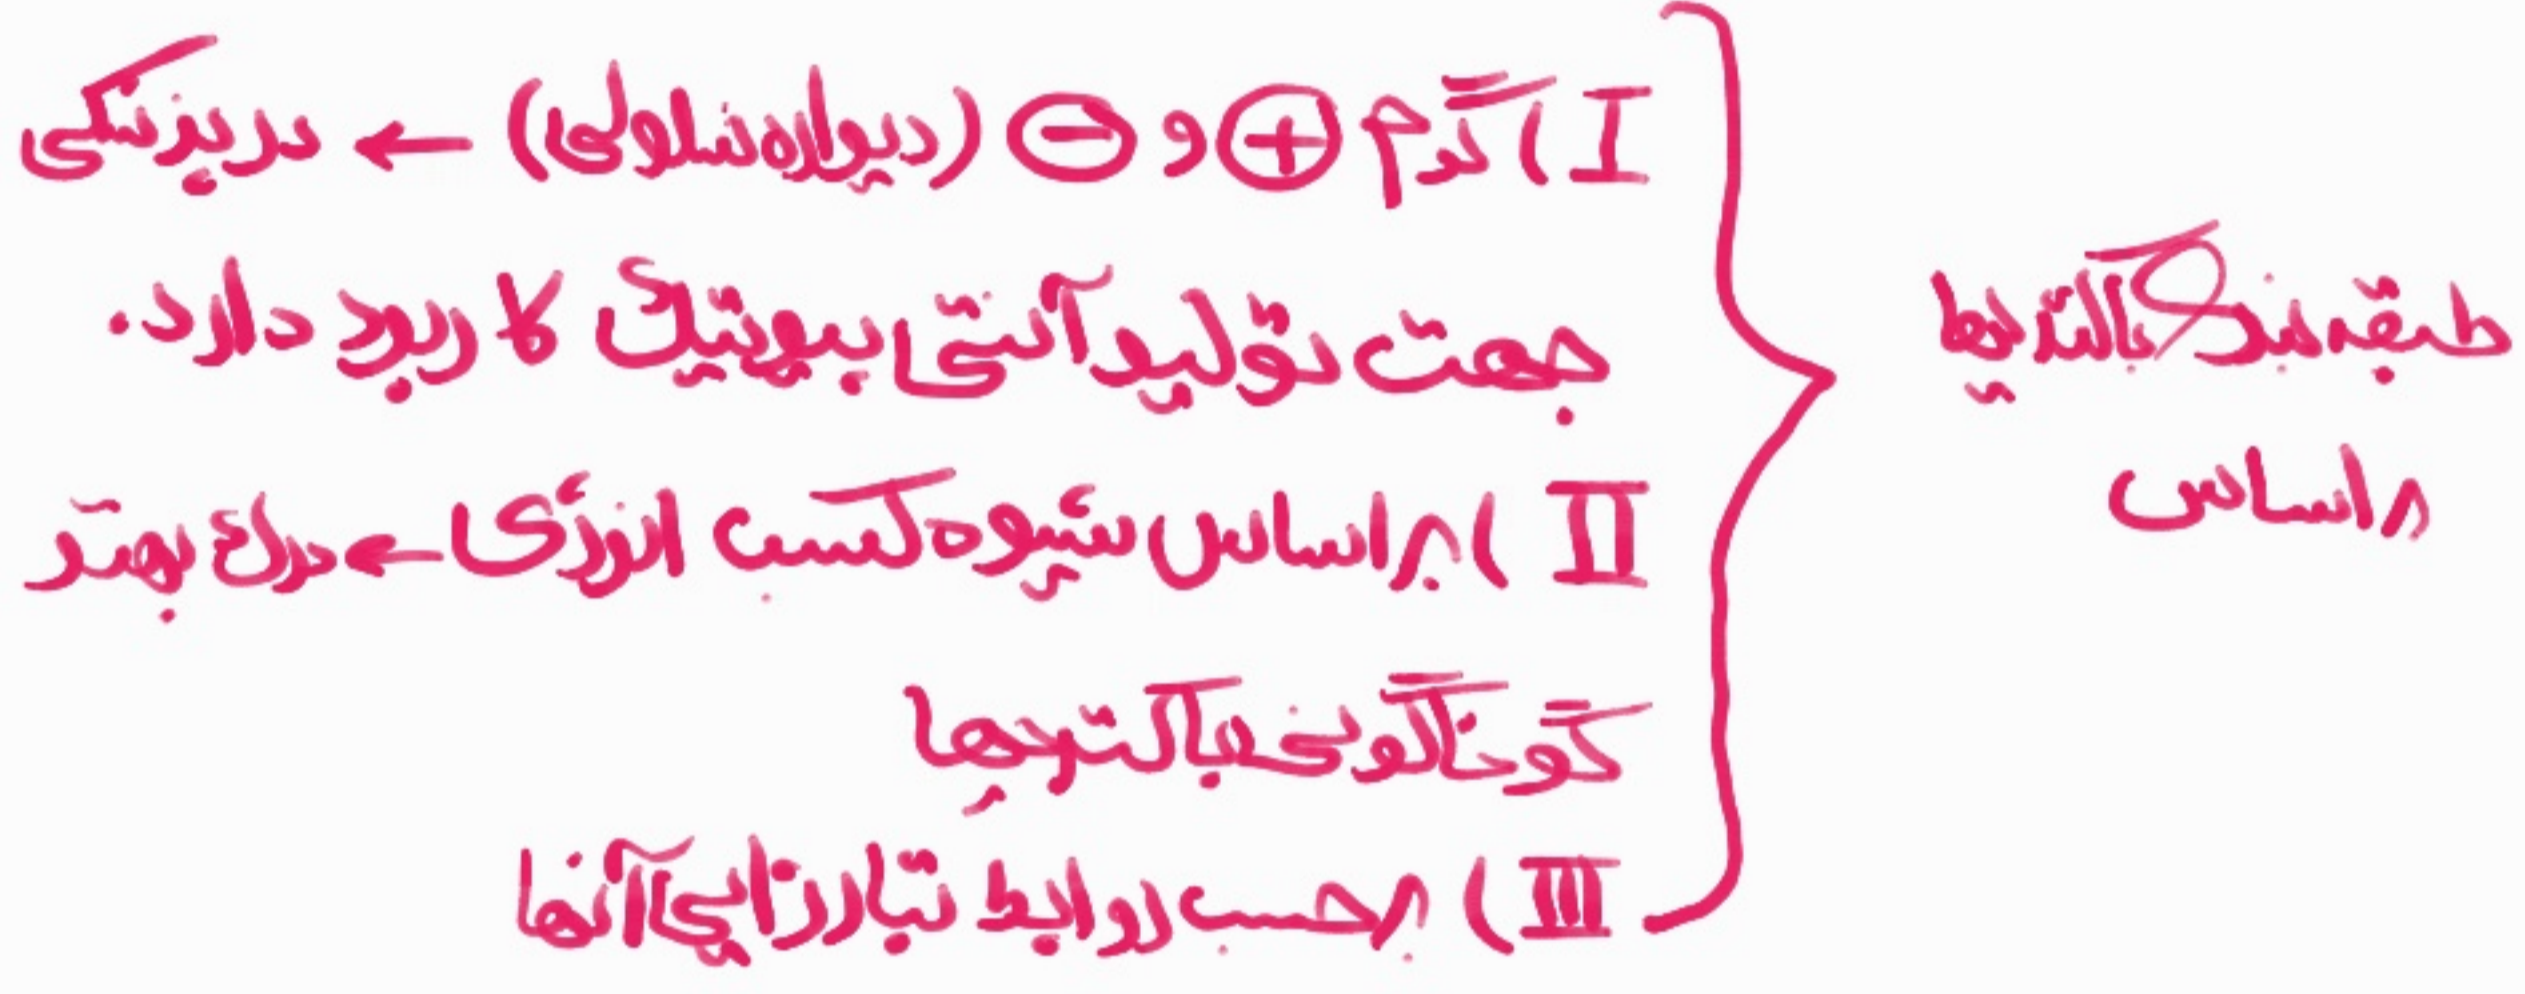 طبقه بندی باکتریها
براساس
I) گرم ⊕ و ⊖ (دیواره سلولی) ← در پزشکی
جهت تولید آنتی بیوتیک کاربرد دارد.
II) براساس شیوه کسب انرژی ← درک بهتر
گوناگونی باکتریها
III) برحسب روابط تبارزایی آنها